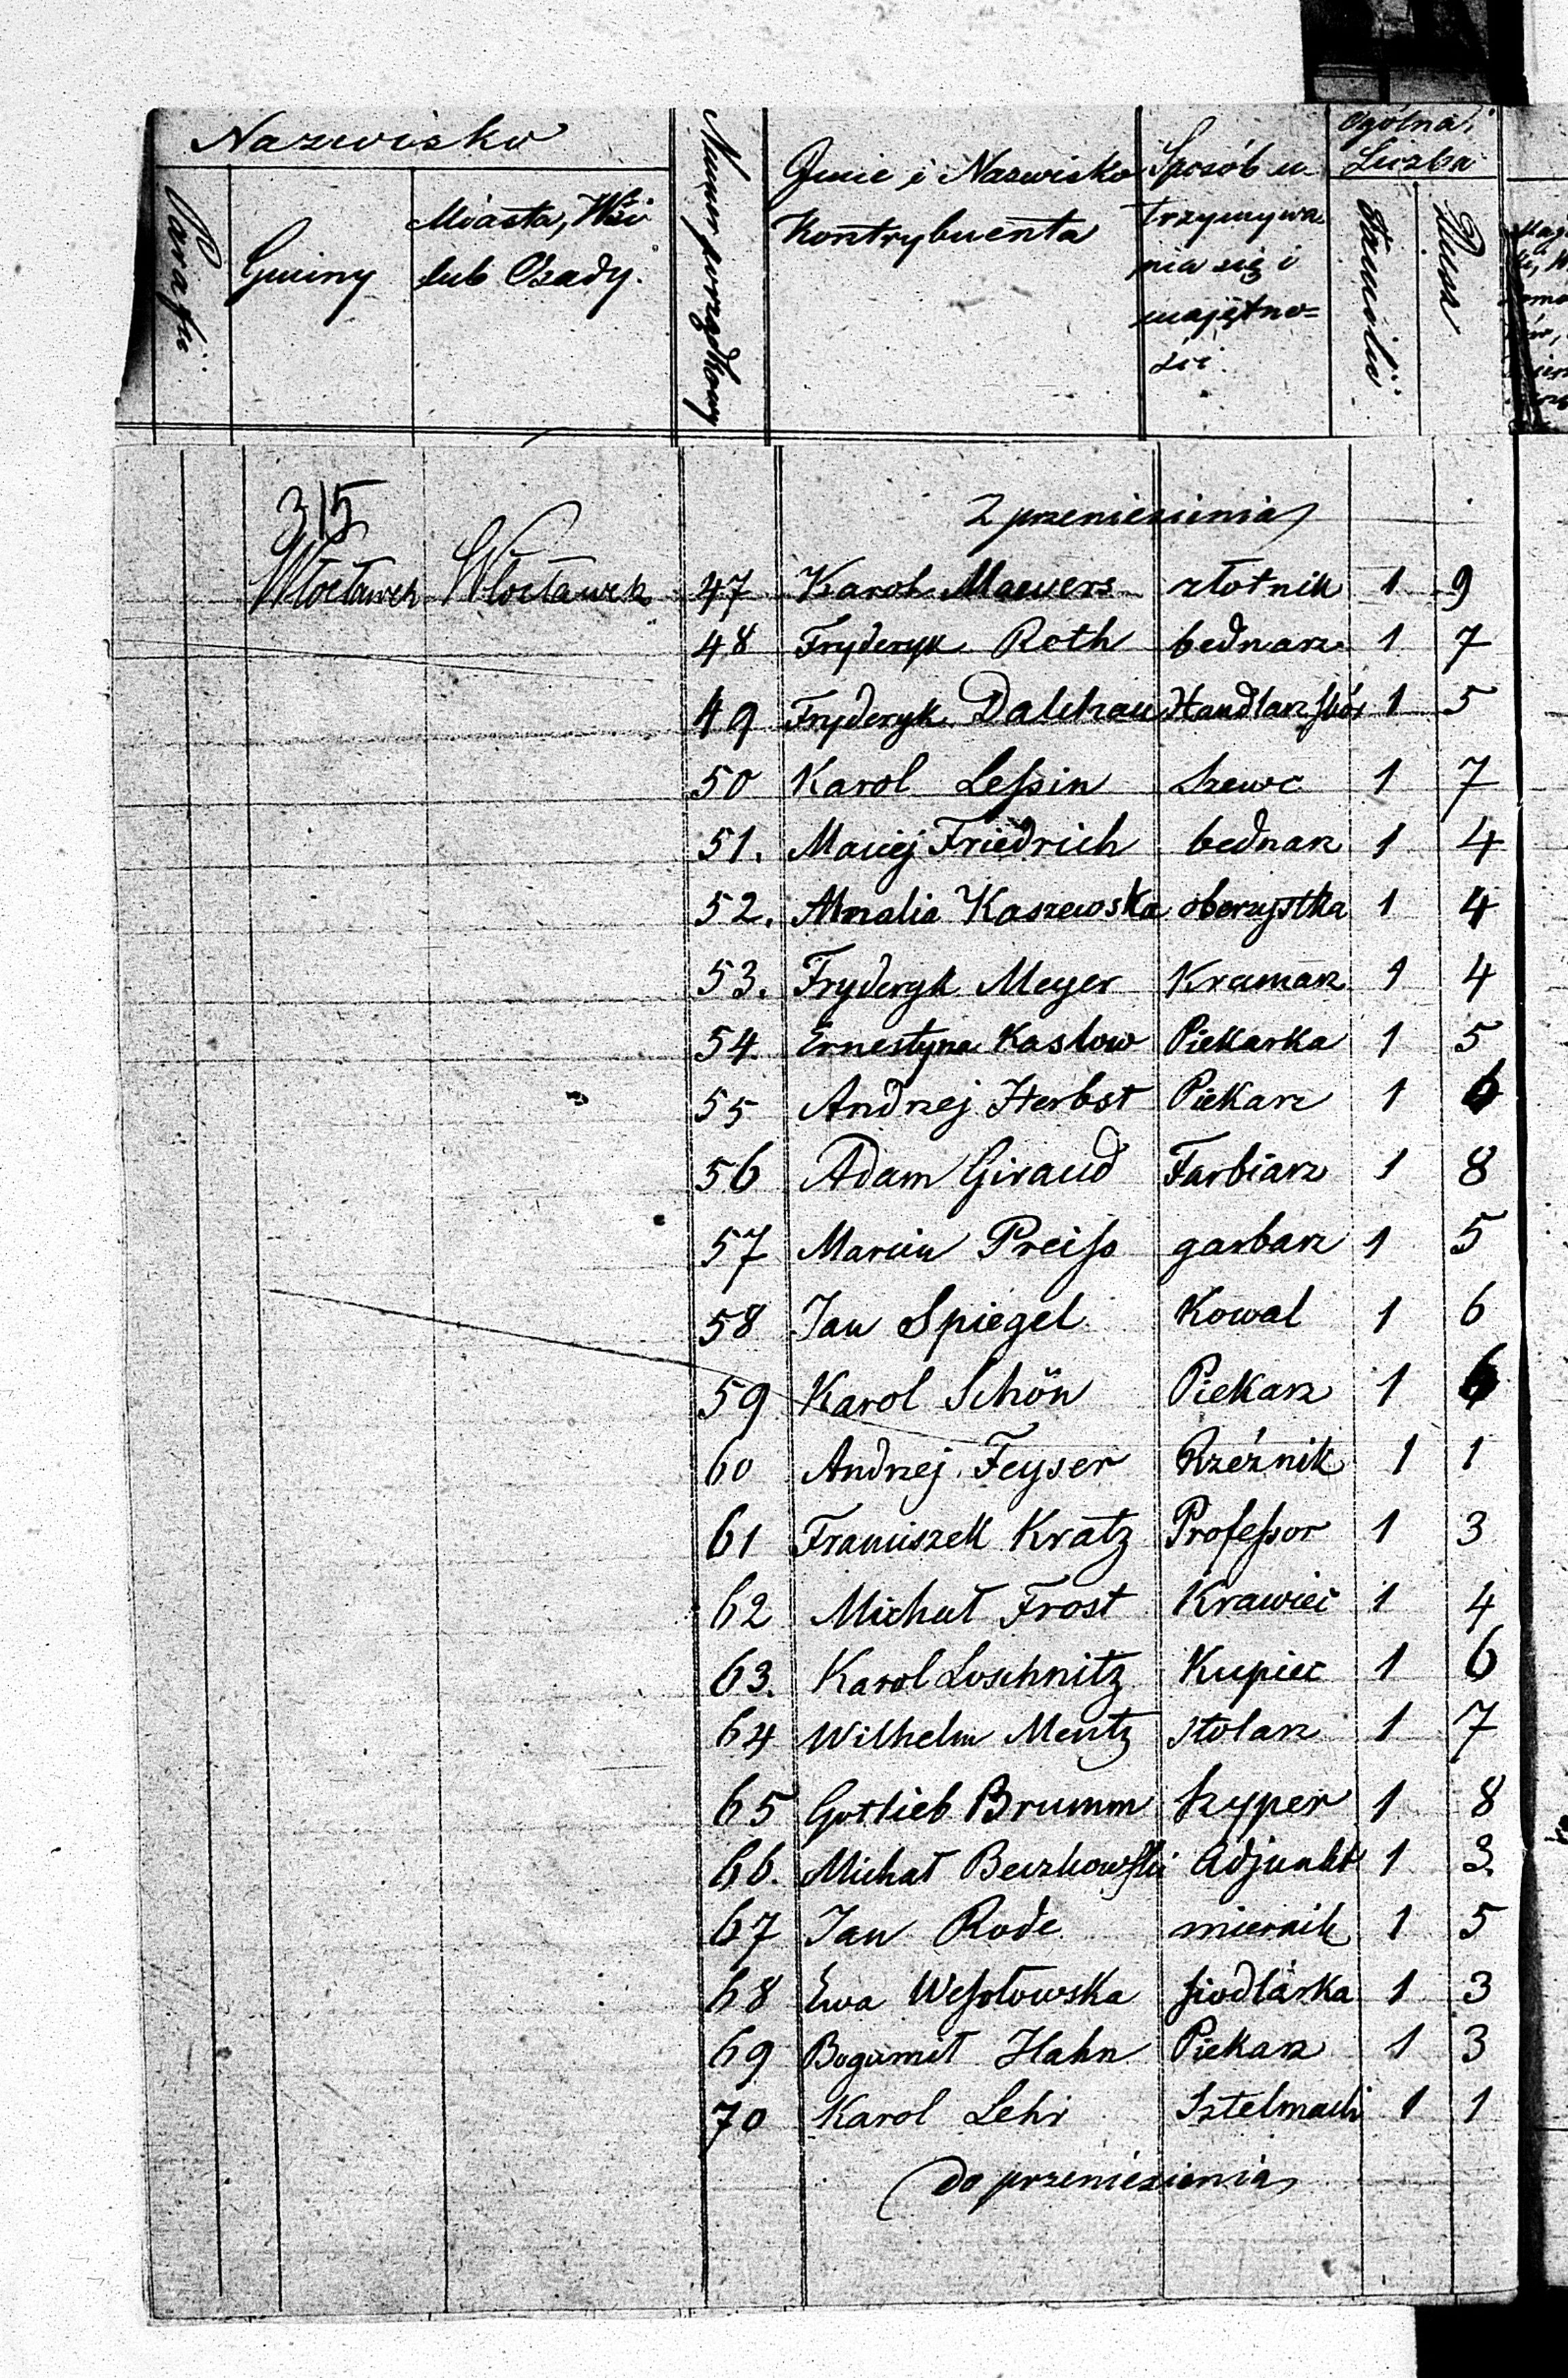 Nazwisko
Parafii
Gminy
Miasta, Wsi
lub Osady.
Numer porządkowy
Imie i Nazwisko
Kontrybuenta
Sposób u-
trzymywa
nia się i
majętno=
ści.
Ogólna
Liczba
Familii
Dusz
315
Z przeniesienia
Włocławek Włocławek 47 Karol Maewers złotnik 1 9
48 Fryderyk Roth bednarz 1 7
49 Fryderyk Dalchau Handlarz skór 1 5
50 Karol Leſsin Szewc 1 7
51. Maciej Friedrich bednarz 1 4
52. Amalia Kaszewska oberzystka 1 4
53. Fryderyk Meyer Kramarz 1 4
54. Ernestyna Kaslow Piekarka 1 5
55 Andrzej Herbst Piekarz 1 6
56 Adam Giraud Farbiarz 1 8
57 Marcin Preiſs garbarz 1 5
58 Jan Spiegel Kowal 1 6
59 Karol Schön Piekarz 1 6
60 Andrzej Feyser Rzeźnik 1 1
61 Franciszek Kratz Profeſsor 1 3
62 Michał Frost Krawiec 1 4
63. Karol Loschnitz Kupiec 1 6
64 Wilhelm Mentz stolarz 1 7
65 Gottlieb Brumm Szyper 1 8
66. Michał Beczkowski Adjunkt 1 3.
67 Jan Rode miernik 1 5
68 Ewa Weſsołowska siodlarka 1 3
69 Bogumił Hahn Piekarz 1 3
70 Karol Lehr Sztelmach 1 1
do przeniesienia